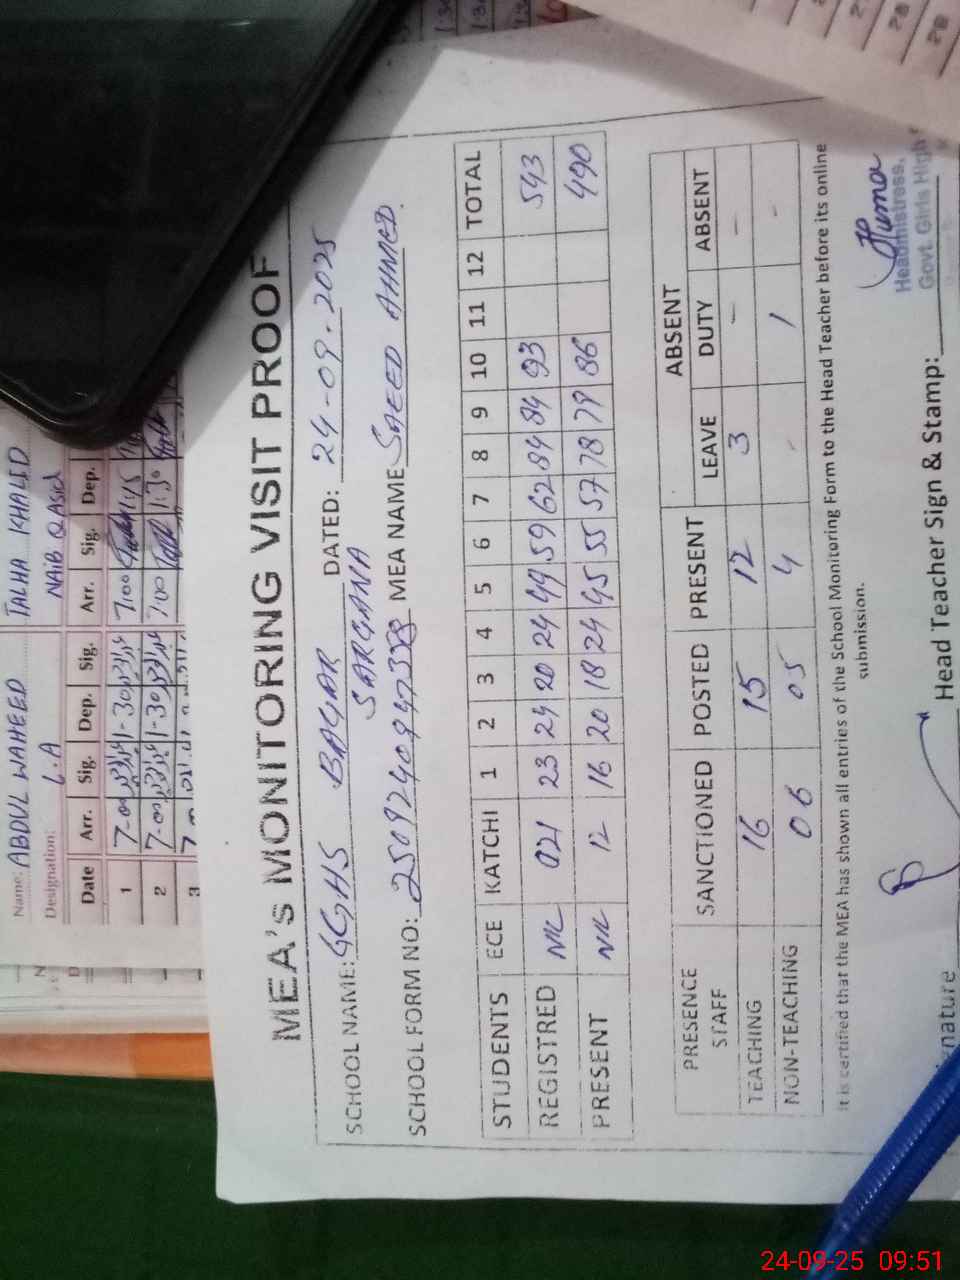 Name: ABDUL WAHEED
Designation: L.A
TALHA KHALID
NAIB QASID
Date Arr. Sig. Dep. Sig. Arr. Sig. Dep.
1 7-00 1-30 7:00 1:45
2 7-00 1-30 7:00 1:30
3
MEA's MONITORING VISIT PROOF
SCHOOL NAME: GGHS BAQAR SARGANA DATED: 24-09-2025
SCHOOL FORM NO: MEA NAME SAEED AHMED.
STUDENTS ECE KATCHI 1 2 3 4 5 6 7 8 9 10 11 12 TOTAL
REGISTRED NIL 021 23 24 20 24 49 59 62 84 84 93 543
PRESENT NIL 12 16 20 18 24 45 55 57 78 79 86 490
PRESENCE STAFF SANCTIONED POSTED PRESENT ABSENT
LEAVE DUTY ABSENT
TEACHING 16 15 12 3 - -
NON-TEACHING 06 05 4 - 1 -
It is certified that the MEA has shown all entries of the School Monitoring Form to the Head Teacher before its online
submission.
Huma
Headmistress,
Govt. Girls High
nature Head Teacher Sign & Stamp:
24-09-25 09:51